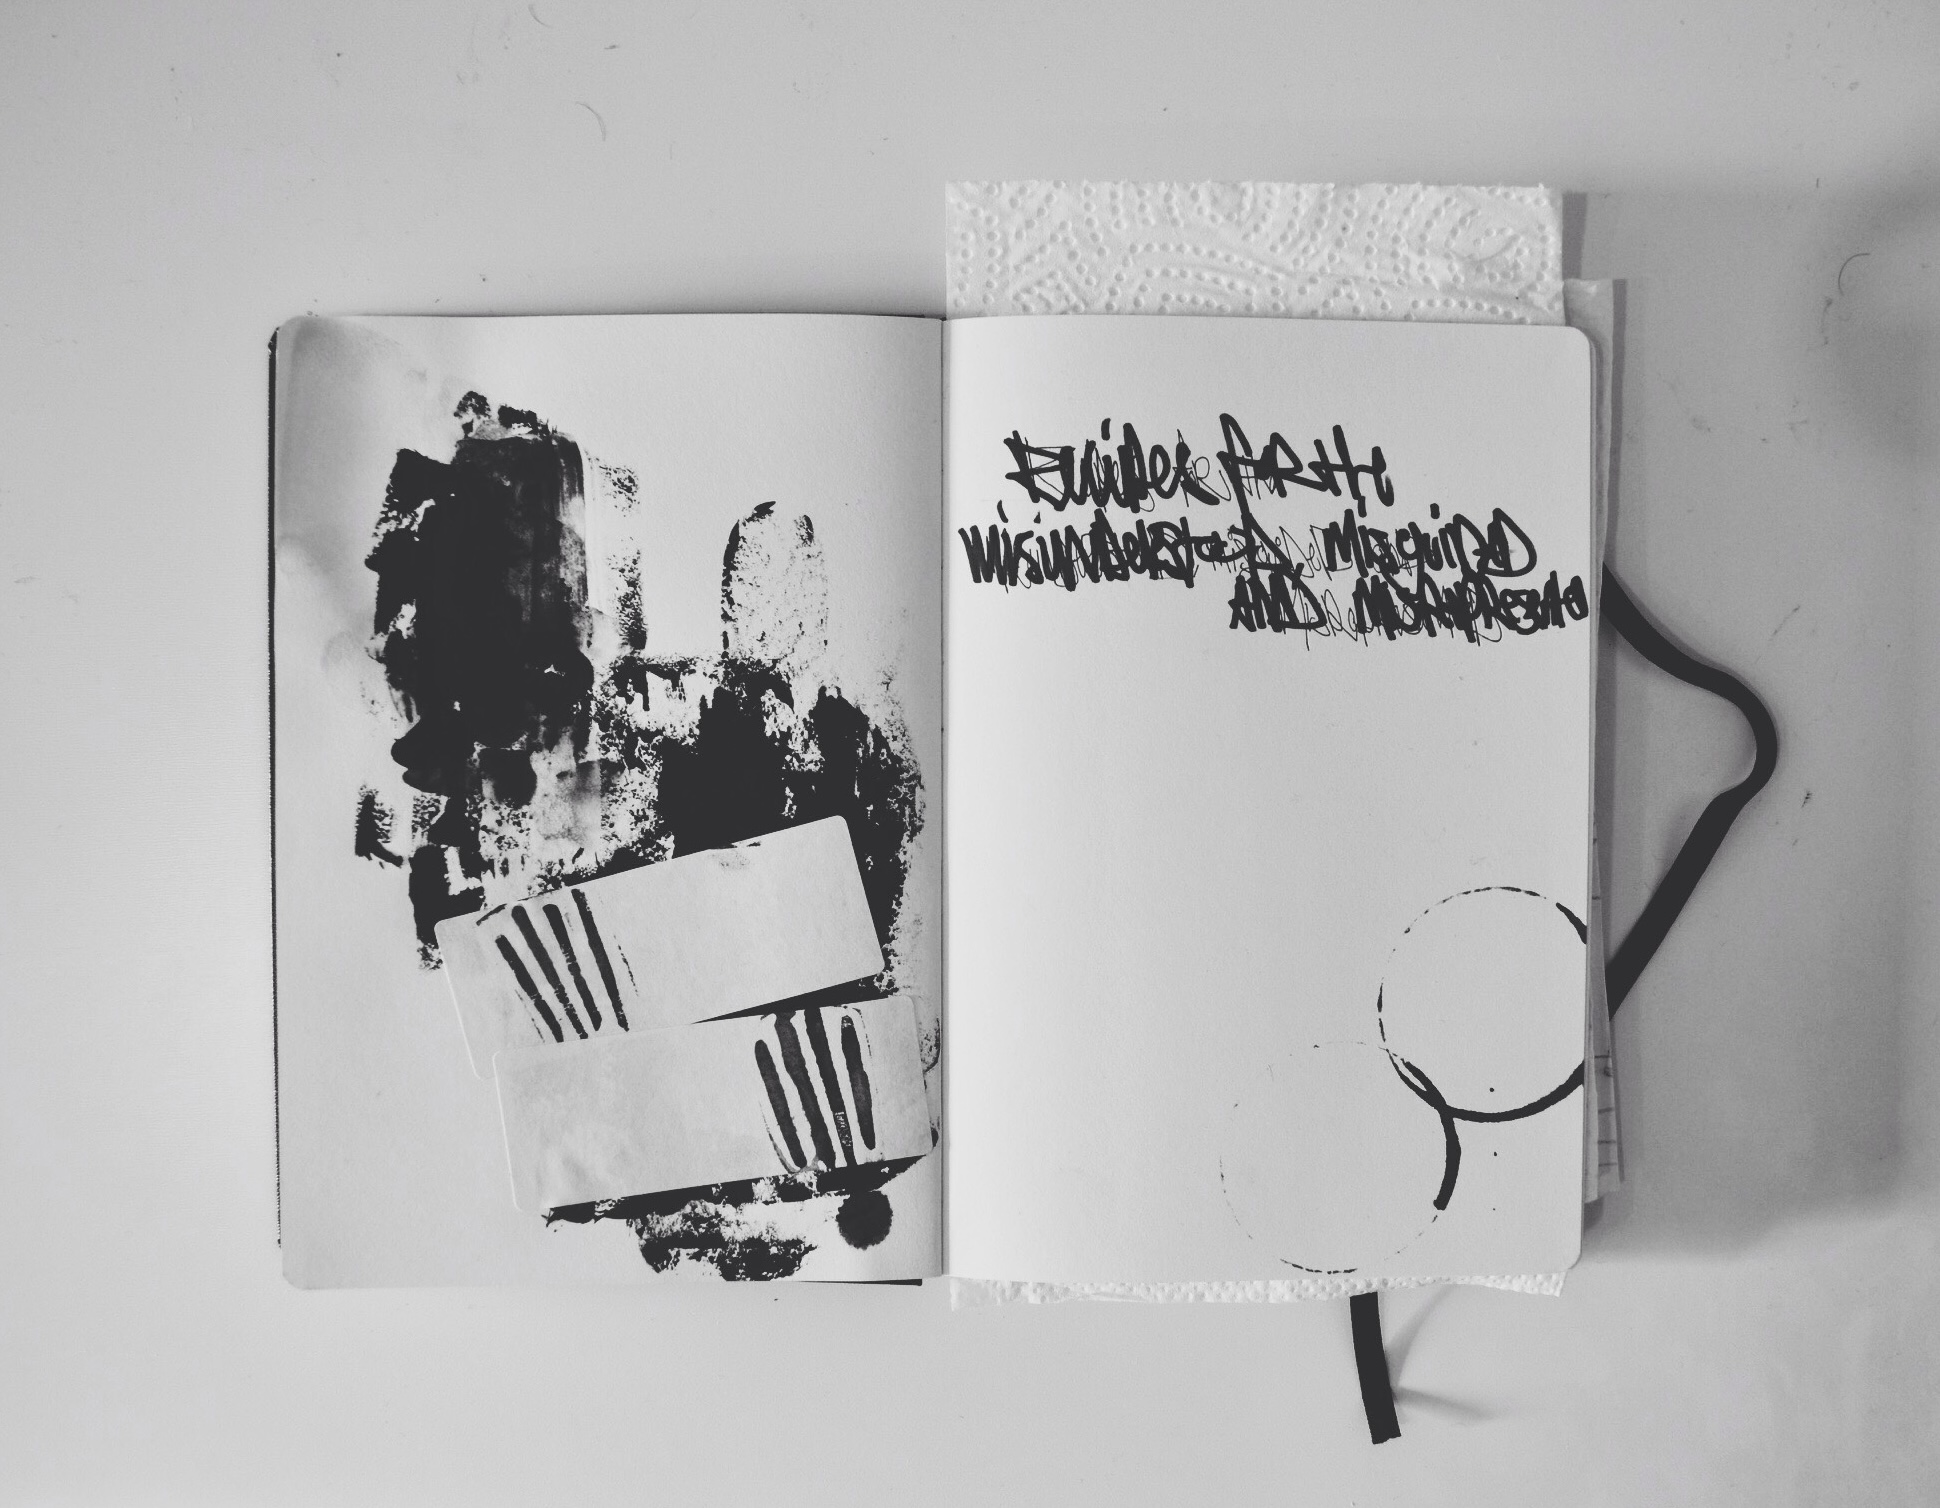 foR the
misunDeRstooD, MisguiDeD
AND MisRepResenteD